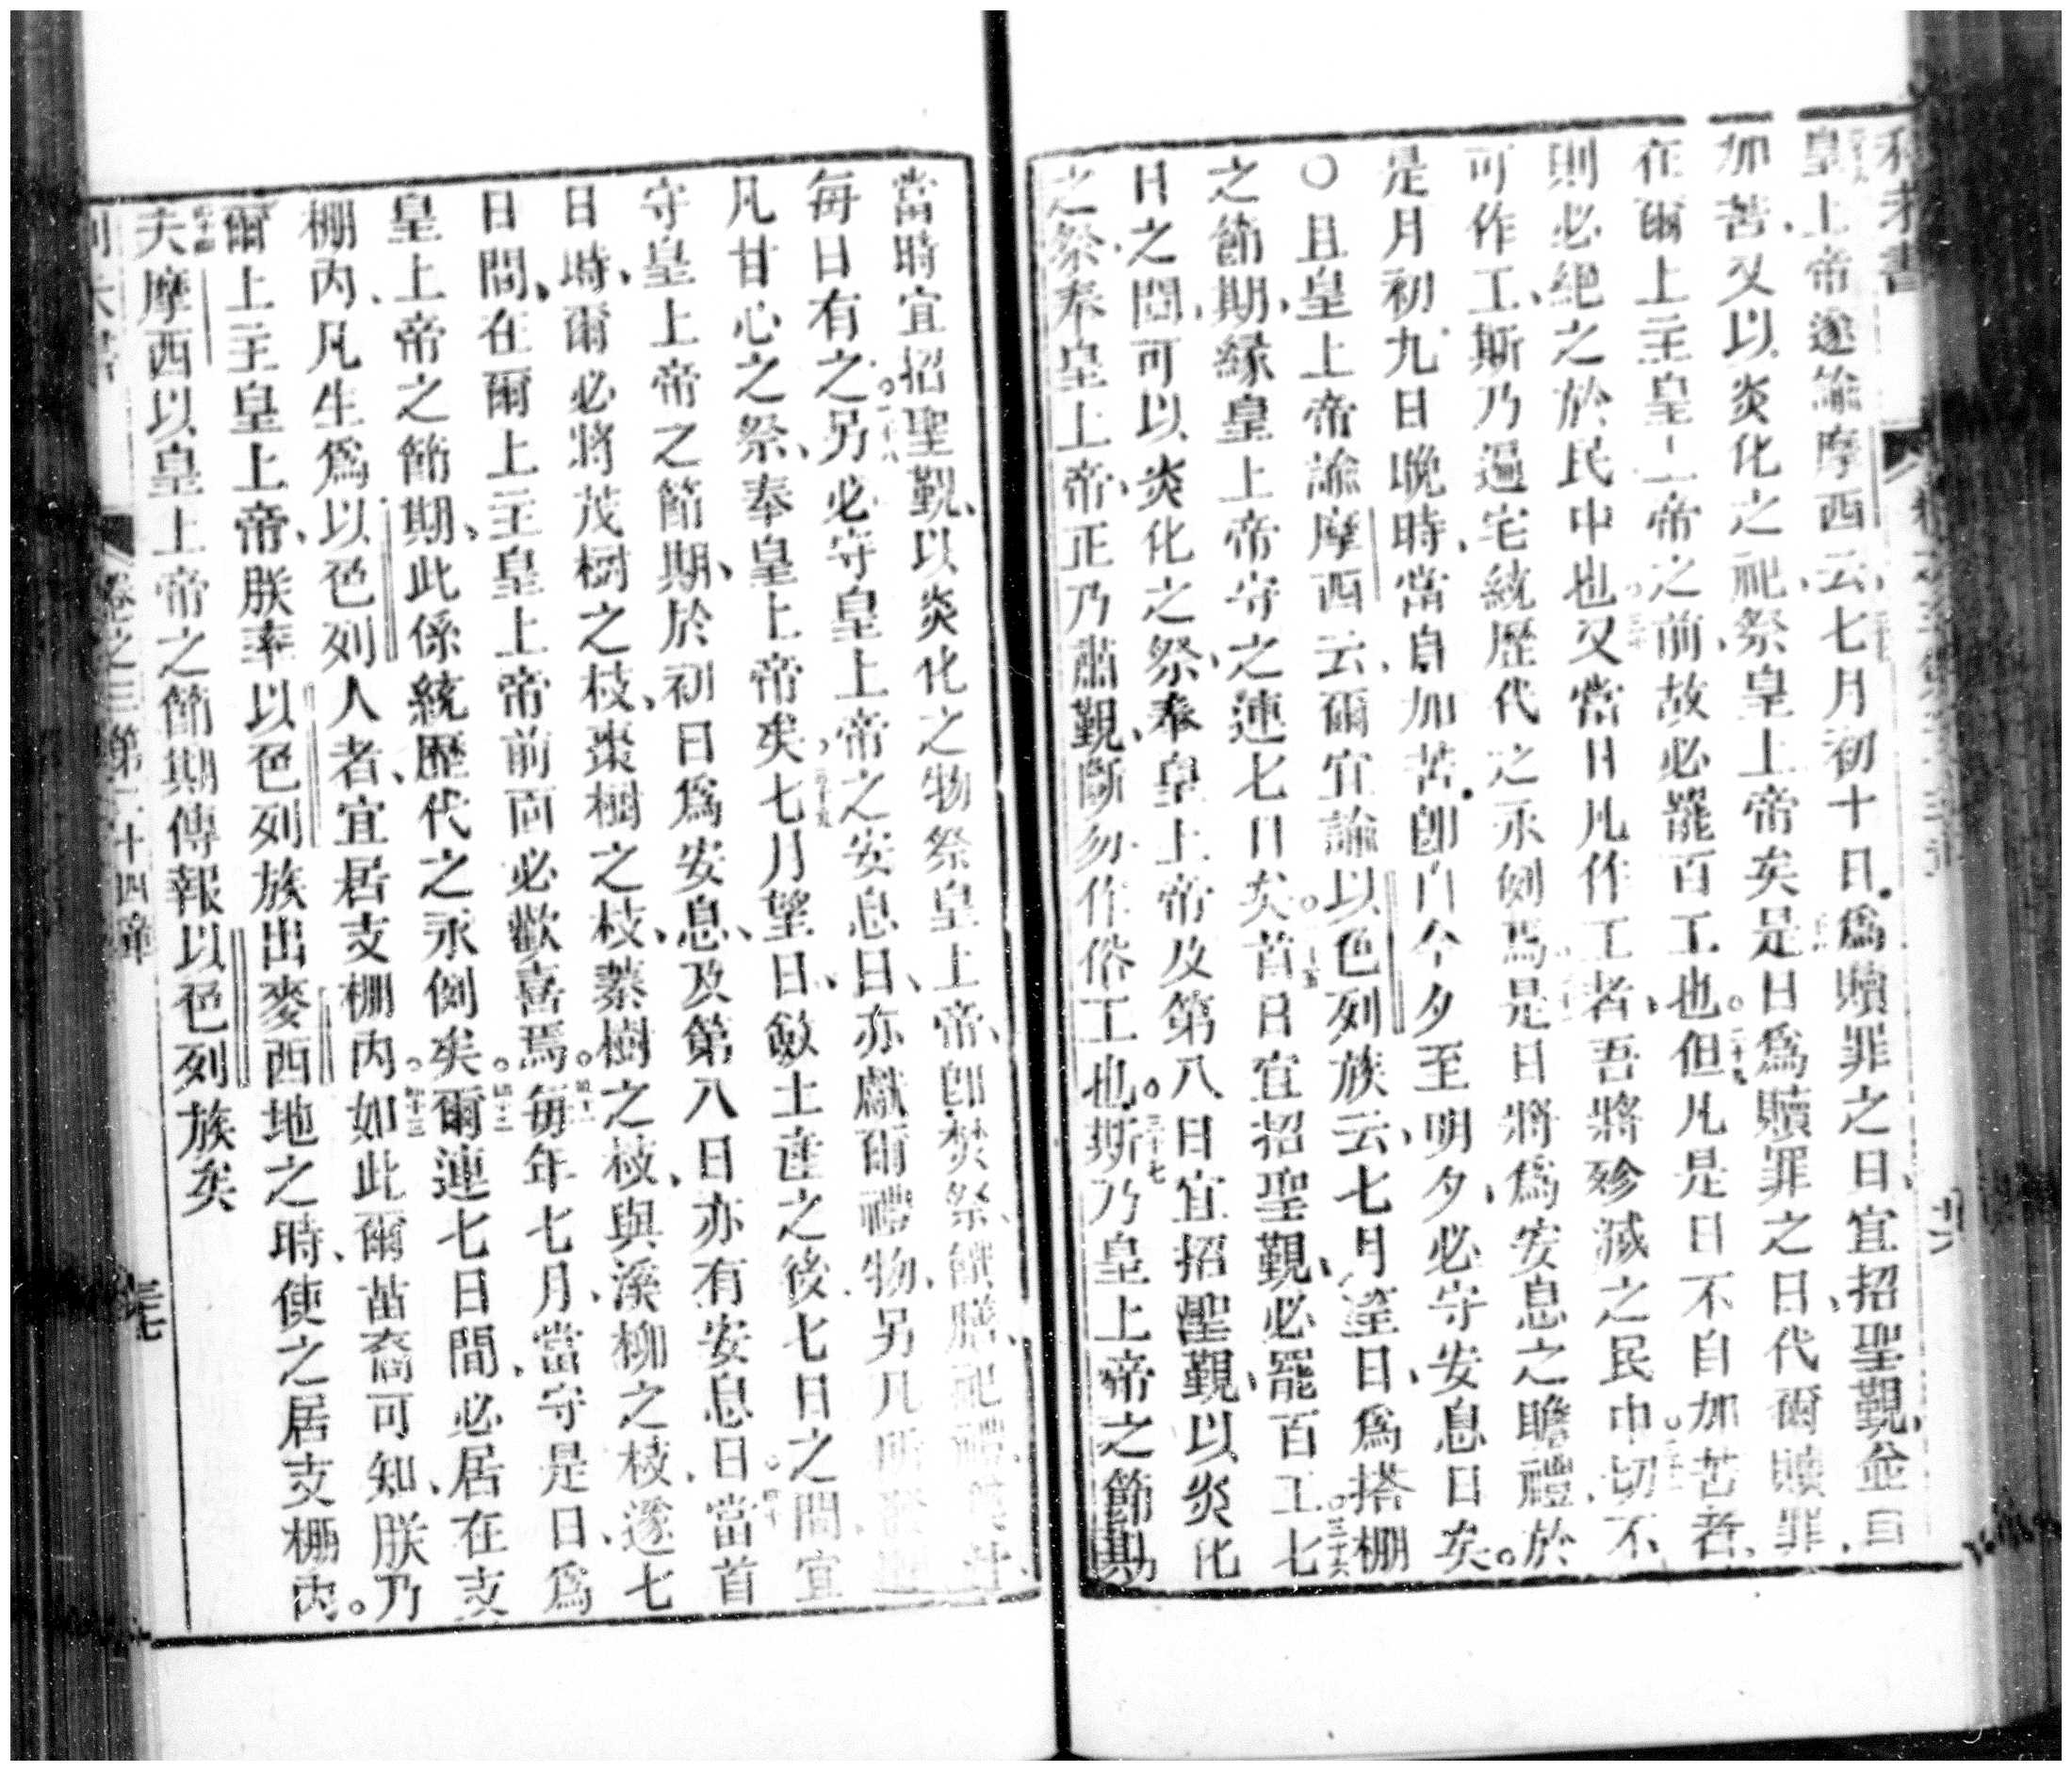 皇上帝遂諭摩西云、七月初十日、爲贖罪之日、宜招聖覲、並自
加苦、又以炎化之祀祭皇上帝矣是日爲贖罪之日、代爾贖罪、
在爾上主皇上帝之前、故必罷百工也。二十九但凡是日不自加苦者、
則必絕之於民中也。三十又當日凡作工者、吾將殄滅之民中。切不
可作工、斯乃遍宅統歷代之永例焉。是日將爲安息之瞻禮、於
是月初九日晚時、當自加苦、卽自今夕至明夕、必守安息日矣。
○且皇上帝諭摩西云、爾宜諭以色列族云、七月望日、爲搭棚
之節期、緣皇上帝守之連七日矣。三十五首日宜招聖覲、必罷百工。三十六七
日之間、可以炎化之祭、奉皇上帝及第八日宜招聖覲、以炎化
之祭奉皇上帝、正乃肅覲、斷勿作俗工也。三十七斯乃皇上帝之節期
當時宜招聖覲、以炎化之物祭皇上帝、卽焚祭、饌膳、祀禮
每日有之。三十八另必守皇上帝之安息日、亦獻爾禮物、另凡所
凡甘心之祭、奉皇上帝矣、三十九七月望日、斂土產之後、七日之間宜
守皇上帝之節期、於初日爲安息、及第八日亦有安息日。四十當首
日時、爾必將茂樹之枝、棗樹之枝、蓁樹之枝、與溪柳之枝、遂七
日間、在爾上主皇上帝前面必歡喜焉。四十一每年七月、當守是日、爲
皇上帝之節期、此係統歷代之永例矣。四十二爾連七日間、必居在支
棚內、凡生爲以色列人者、宜居支棚內。四十三如此爾苗裔可知、朕乃
爾上主皇上帝、朕率以色列族出麥西地之時、使之居支棚內。
四十四夫摩西以皇上帝之節期傳報以色列族矣
卷之三第二十四章
三七